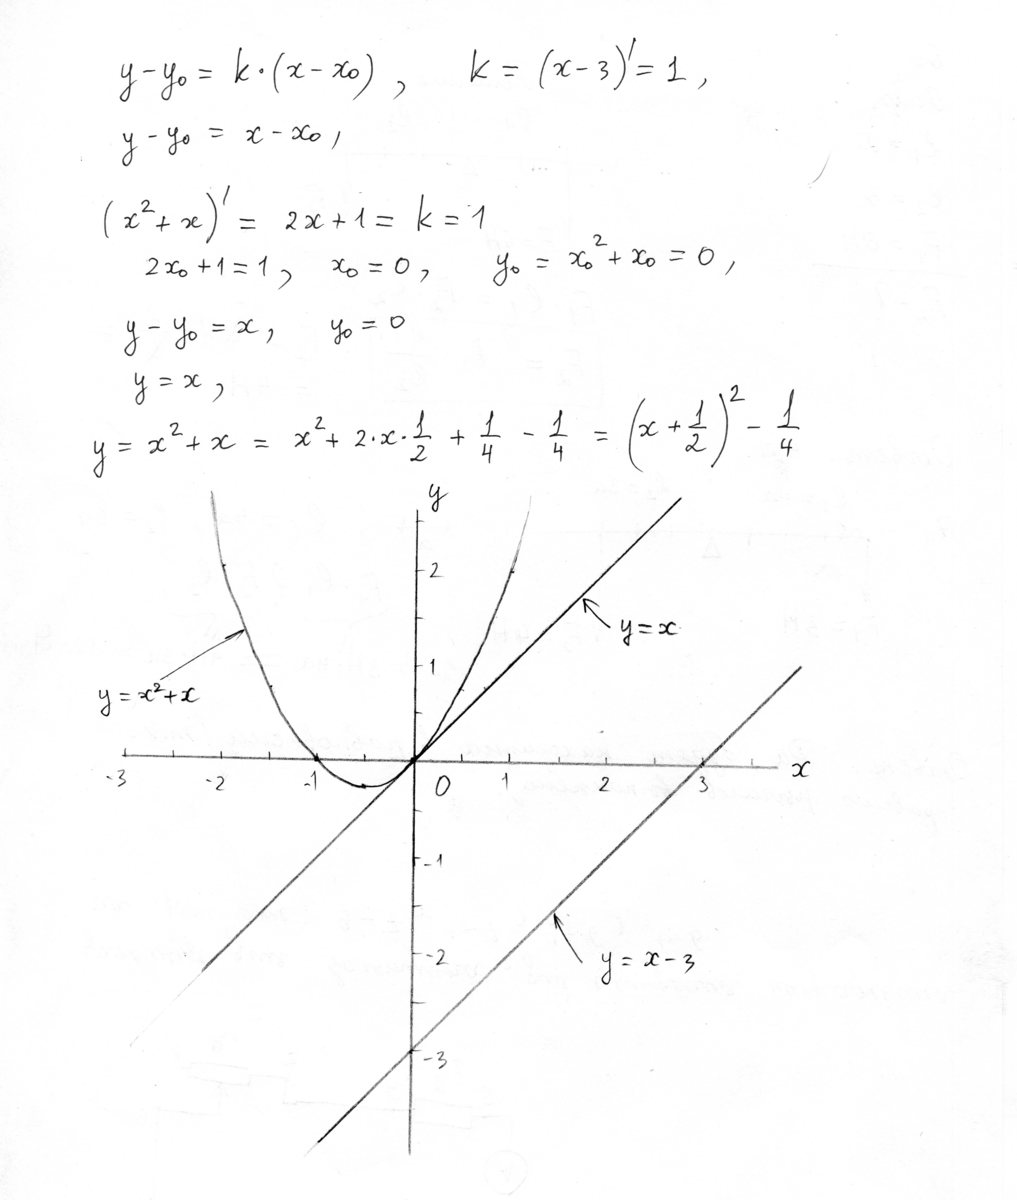 y - y₀ = k·(x - x₀), k = (x - 3)' = 1,
y - y₀ = x - x₀,
(x² + x)' = 2x + 1 = k = 1
2x₀ + 1 = 1, x₀ = 0, y₀ = x₀² + x₀ = 0,
y - y₀ = x, y₀ = 0
y = x,
y = x² + x = x² + 2·x·1/2 + 1/4 - 1/4 = (x + 1/2)² - 1/4
y
2
y = x
1
y = x² + x
-3 -2 -1 0 1 2 3 x
-1
-2
y = x - 3
-3